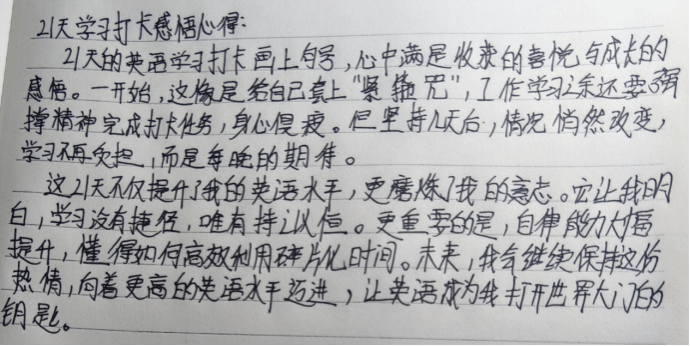 21天学习打卡感悟心得:
21天的英语学习打卡画上句号,心中满是收获的喜悦与成长的
感悟。一开始,这像是给自己套上"紧箍咒",工作学习之余还要强
撑精神完成打卡任务,身心俱疲。但坚持几天后,情况悄然改变,
学习不再负担,而是每晚的期待。
这21天不仅提升了我的英语水平,更磨炼了我的意志。它让我明
白,学习没有捷径,唯有持之以恒。更重要的是,自律能力大幅
提升,懂得如何高效利用碎片化时间。未来,我会继续保持这份
热情,向着更高的英语水平迈进,让英语成为我打开世界大门的
钥匙。